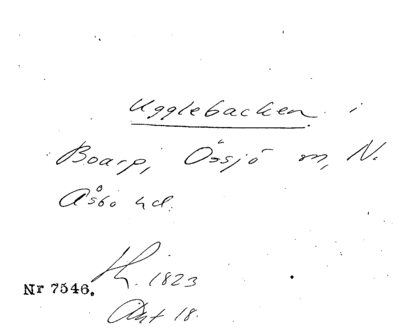 Ugglebacken i
Boarp, Össjö sn, N.
Åsbo hd.
1823
Nr 7546.
Akt 18.